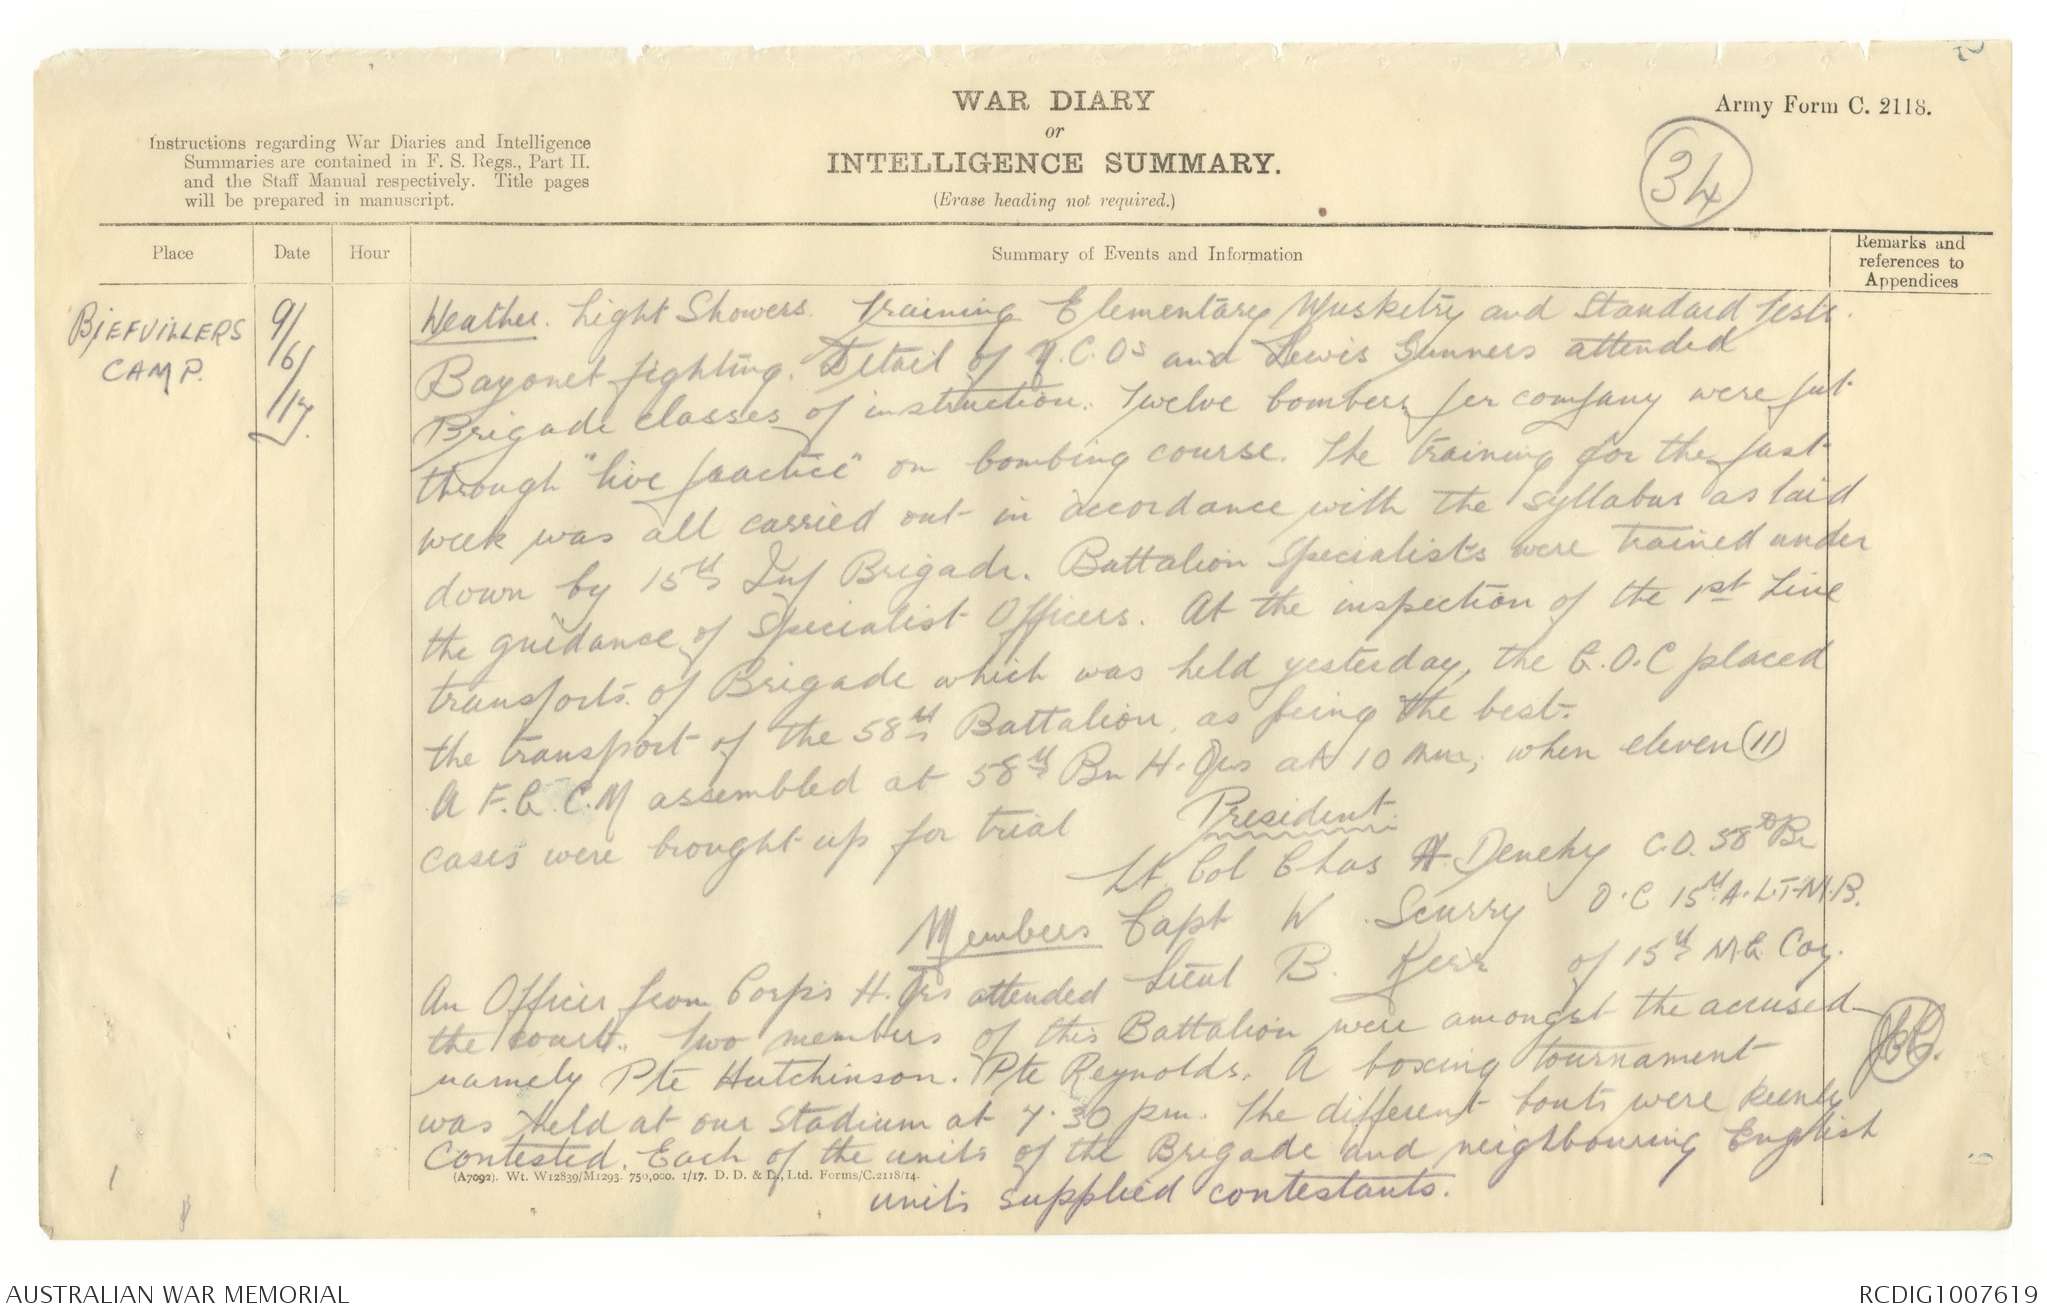 WAR DIARY
or
INTELLIGENCE SUMMARY.
(Erase heading not required.)
Army Form C. 2118.
34
Instructions regarding War Diaries and Intelligence
Summaries are contained in F. S. Regs., Part II.
and the Staff Manual respectively. Title pages
will be prepared in manuscript.
Place
Date
Hour
Summary of Events and Information
Remarks and
references to
Appendices
BIEFVILLERS
CAMP.
9/
6/
17.
Weather. Light Showers. Training Elementary Musketry and Standard Tests.
Bayonet fighting. Detail of N.C.Os and Lewis Gunners attended
Brigade classes of instruction. Twelve bombers per company were put
through "live practice" on bombing course. The training for the past
week was all carried out in accordance with the syllabus as laid
down by 15th Inf Brigade. Battalion Specialists were trained under
the guidance of Specialist Officers. At the inspection of the 1st Line
transports of Brigade which was held yesterday, the G.O.C placed
the transport of the 58th Battalion, as being the best.
A F.G.C.M assembled at 58th Bn H.Qrs at 10 am, when eleven (11)
cases were brought up for trial
President
Lt Col Chas A. Denehy C.O. 58th Bn
Members Capt W Scurry O.C 15th A.L.T.M.B.
Lieut B. Kerr of 15th M.G. Coy.
An Officer from Corps H.Qrs attended
the court. Two members of this Battalion were amongst the accused
namely Pte Hutchinson. Pte Reynolds. A boxing tournament
was held at our Stadium at 7.30 pm. The different bouts were keenly
contested. Each of the units of the Brigade and neighbouring English
units supplied contestants.
(A7092). Wt. W12839/M1293. 750,000. 1/17. D. D. & L., Ltd. Forms/C.2118/14.
AUSTRALIAN WAR MEMORIAL
RCDIG1007619